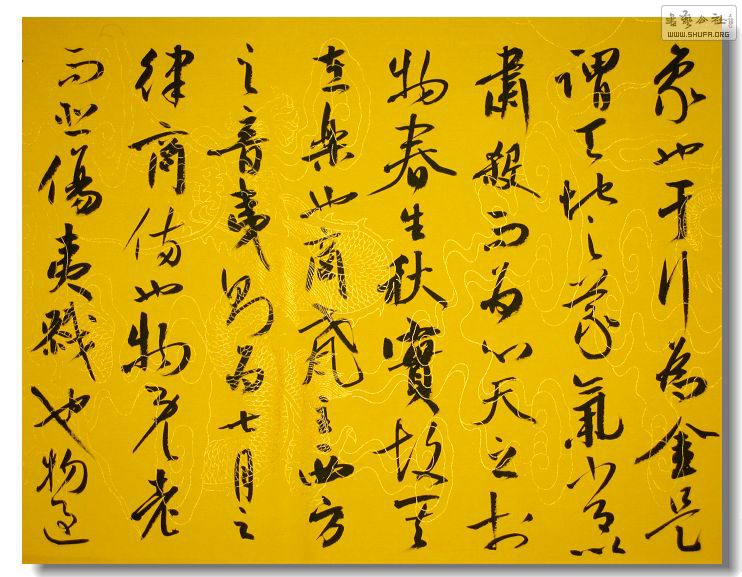 象也于行為金是
謂天地之義氣常以
肅殺而為心天之於
物春生秋實故其
在樂也商聲主西方
之音夷則為七月之
律商傷也物既老
而悲傷夷戮也物過
书艺公社
WWW.SHUFA.ORG